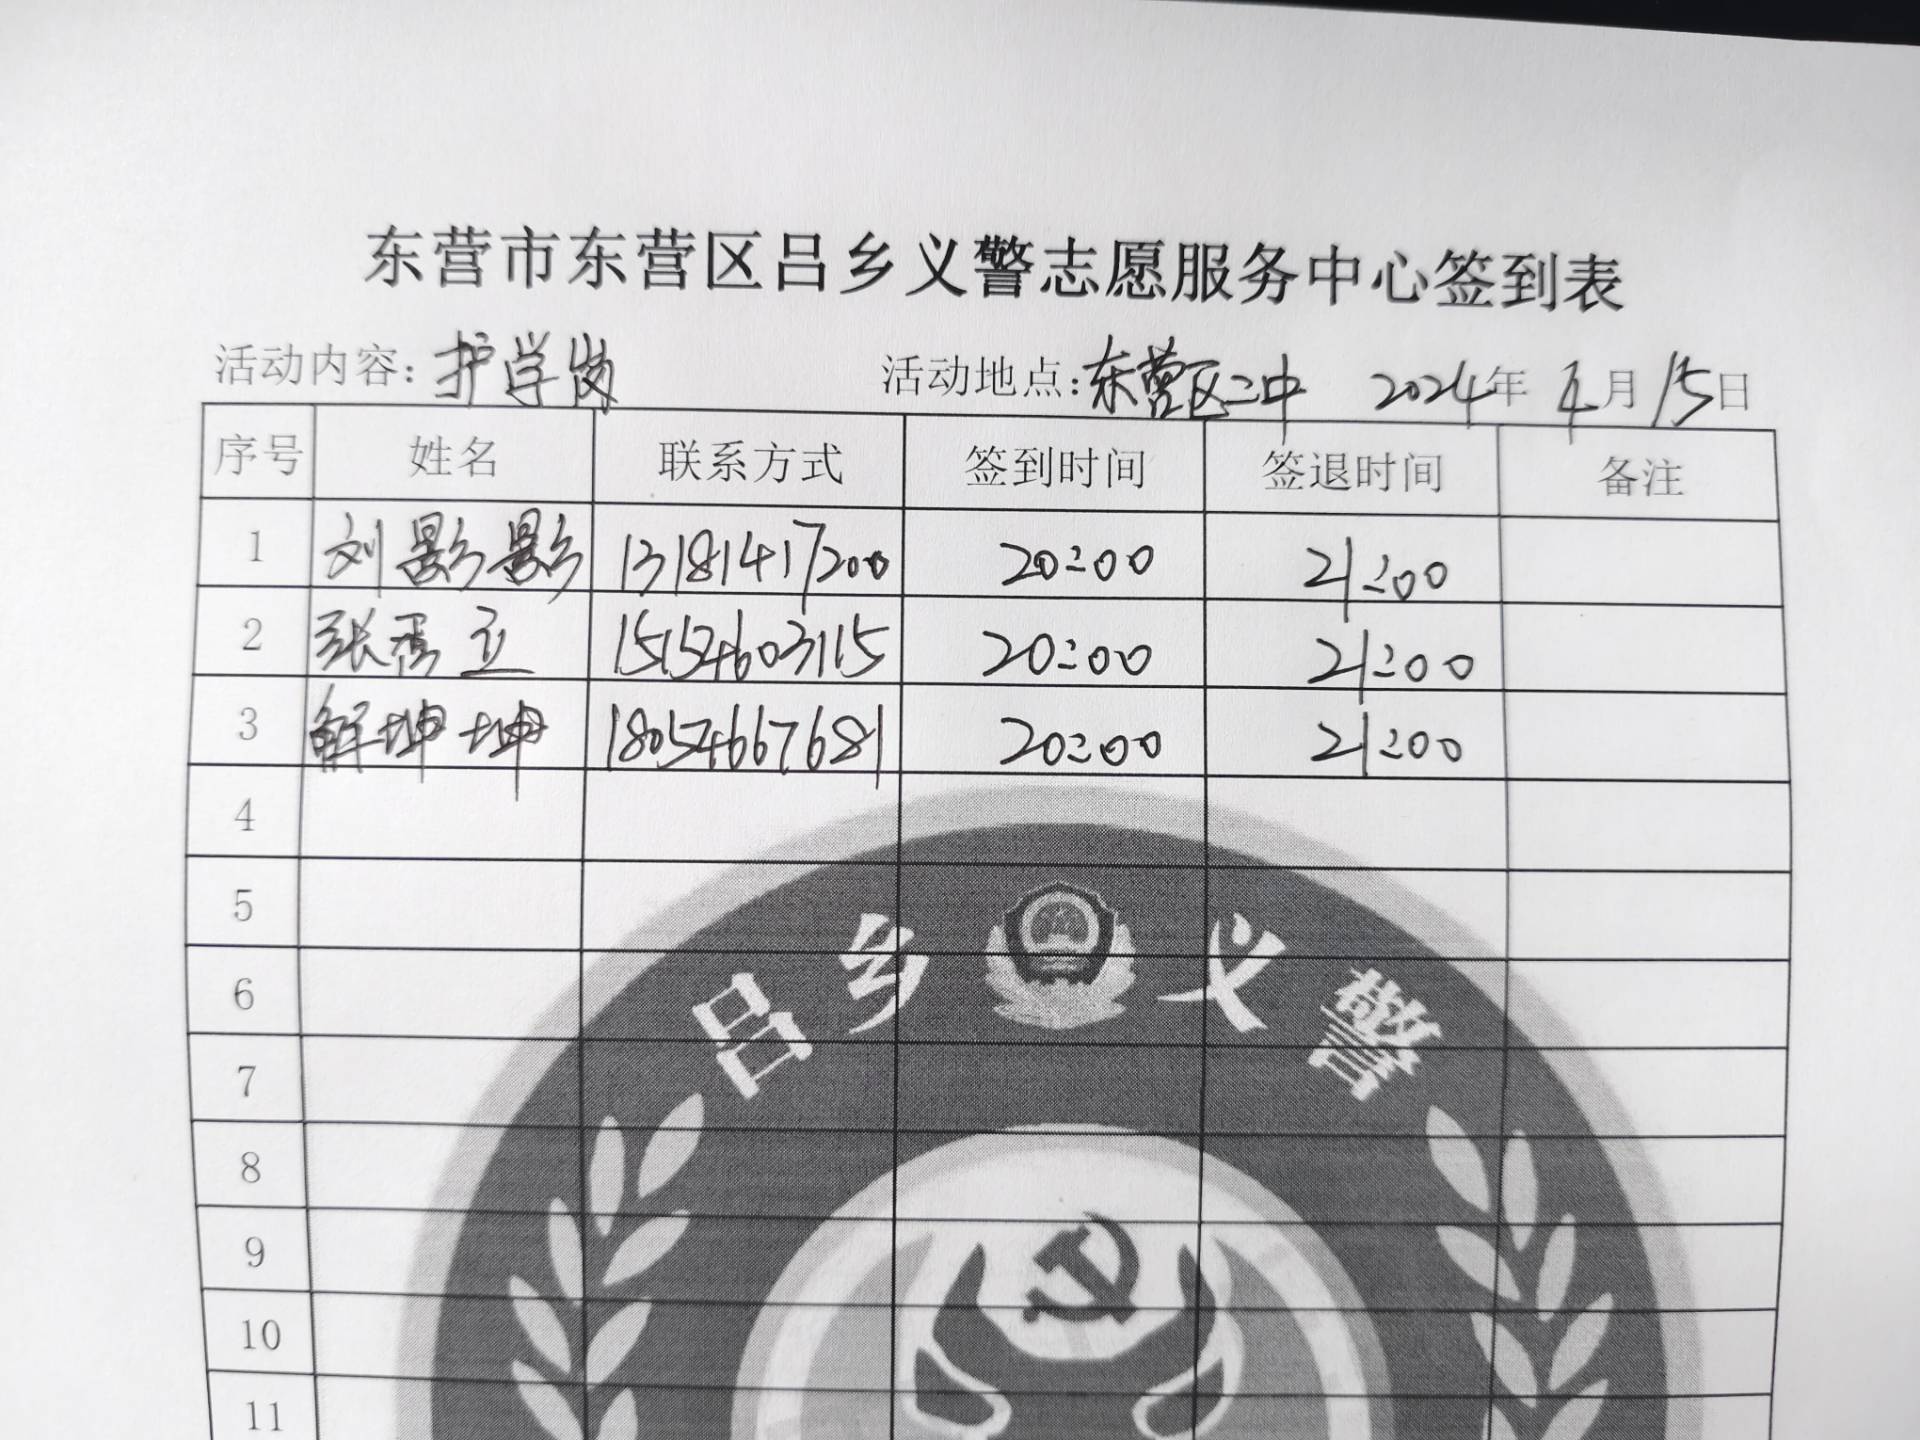 东营市东营区吕乡义警志愿服务中心签到表
活动内容：护学岗 活动地点：东营区二中 2024年 4月15日
序号 姓名 联系方式 签到时间 签退时间 备注
1 刘影影 13181417200 20:00 21:00
2 张 立 15154603115 20:00 21:00
3 解坤坤 18054667681 20:00 21:00
4
5
6
7
8
9
10
11
吕乡义警